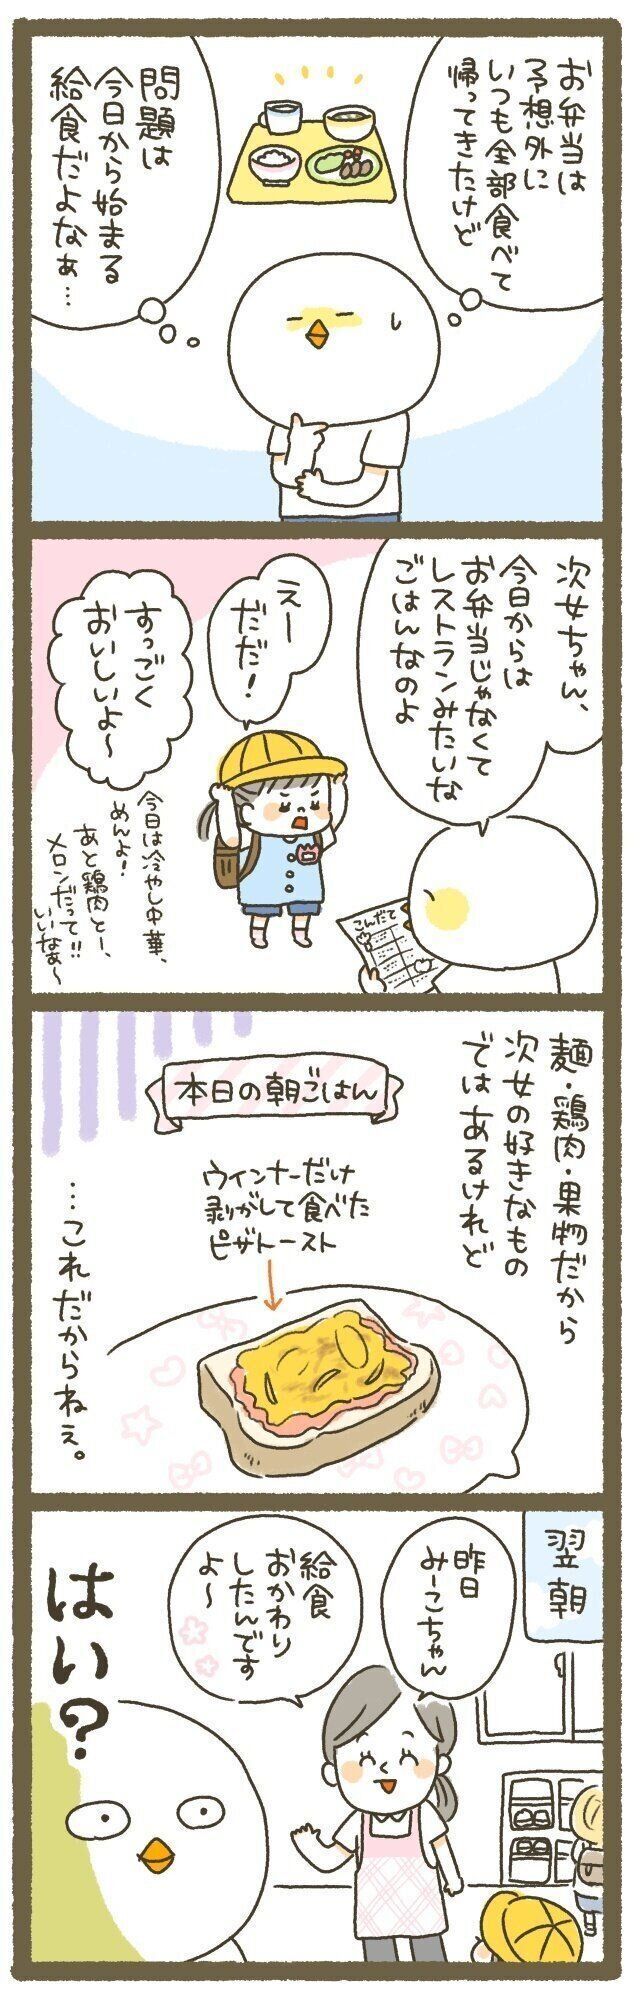 お弁当は
予想外に
いつも全部食べて
帰ってきたけど
問題は
今日から始まる
給食だよなぁ…
次女ちゃん、
今日からは
お弁当じゃなくて
レストランみたいな
ごはんなのよ
こんだて
えー
だだ!
すっごく
おいしいよ〜
今日は冷やし中華、
めんよ!
あと鶏肉とー、
メロンだって!!
いいなぁ〜
麺・鶏肉・果物だから
次女の好きなもの
ではあるけれど
本日の朝ごはん
ウインナーだけ
剥がして食べた
ピザトースト
…これだからねぇ。
翌朝
昨日
みーこちゃん
給食
おかわり
したんです
よ〜
はい?